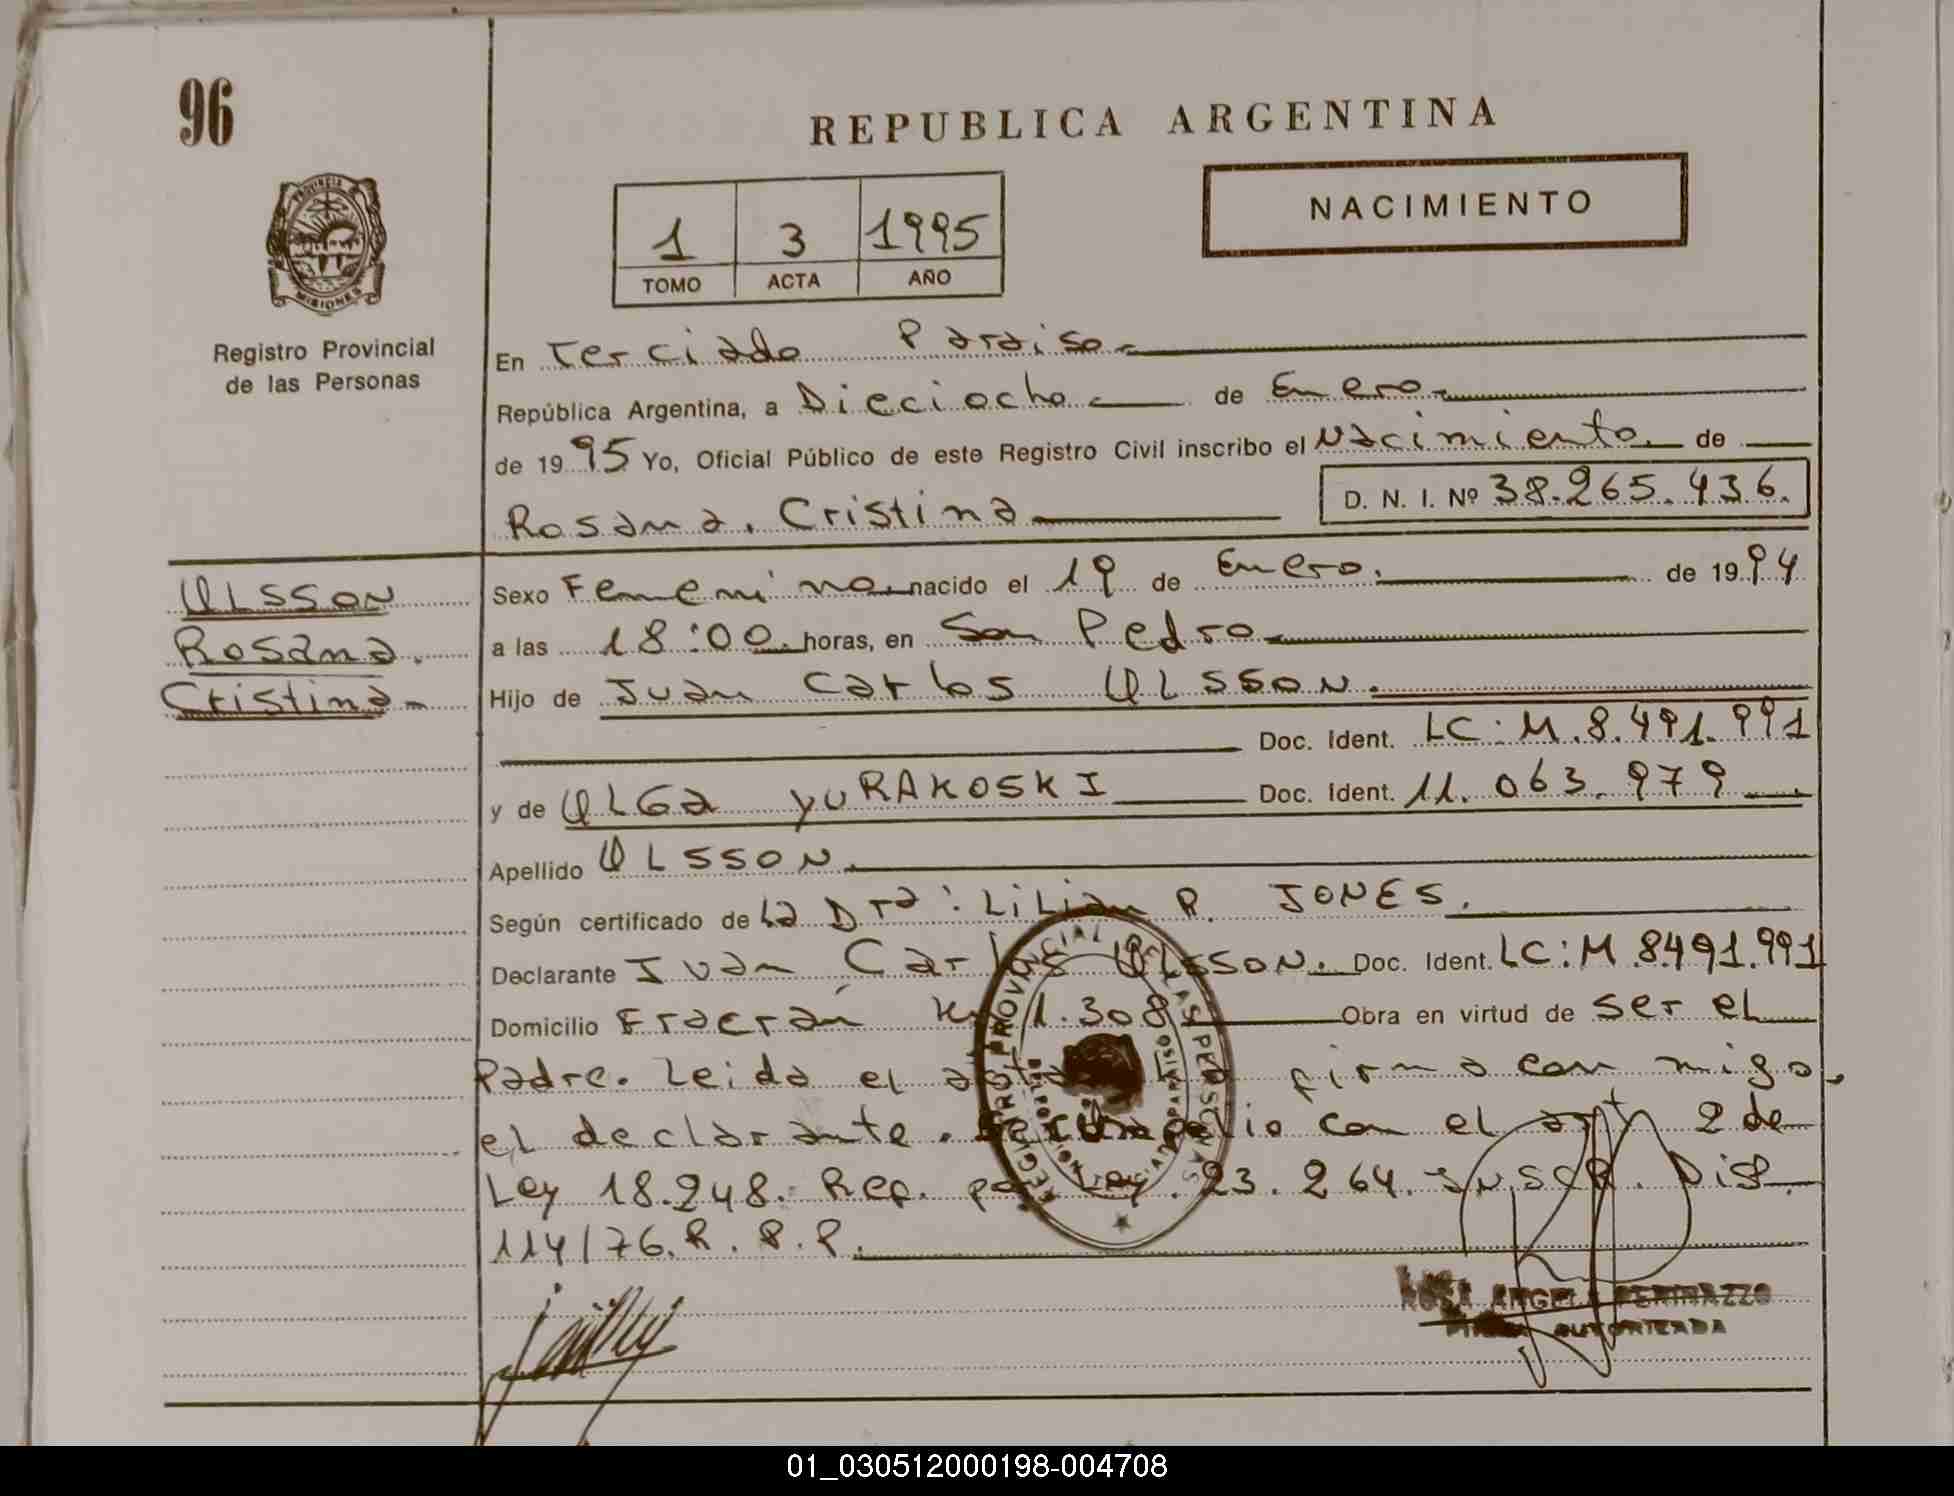 96
REPUBLICA ARGENTINA
NACIMIENTO
1 3 1995
TOMO ACTA AÑO
PROVINCIA DE
MISIONES
Registro Provincial
de las Personas
En Terciado Paraiso.
República Argentina, a Dieciocho de Enero.
de 1995 Yo, Oficial Público de este Registro Civil inscribo el Nacimiento de
Rosana. Cristina D. N. I. Nº 38.265.436.
OLSSON
Rosana.
Cristina-
Sexo Femenino nacido el 19 de Enero. de 1994
a las 18:00 horas, en San Pedro
Hijo de Juan Carlos OLSSON.
Doc. Ident. LC: M.8.491.991
y de OLGa YURAKOSKI Doc. Ident. 11.063.979
Apellido OLSSON.
Según certificado de La Dra: LiLian R. JONES.
Declarante Juan Carlos OLSSON. Doc. Ident. LC: M 8491.991
Domicilio Fracrán Km 1.308 Obra en virtud de ser el
Padre. Leida el acta firma con migo,
el declarante. con el art 2 de
Ley 18.248. Rep. por Ley. 23.264. Disp.
114/76.R.P.P.
REGISTRO PROVINCIAL DE LAS PERSONAS
ROSA ANGELA PERIRAZZO
FIRMA AUTORIZADA
01_030512000198-004708